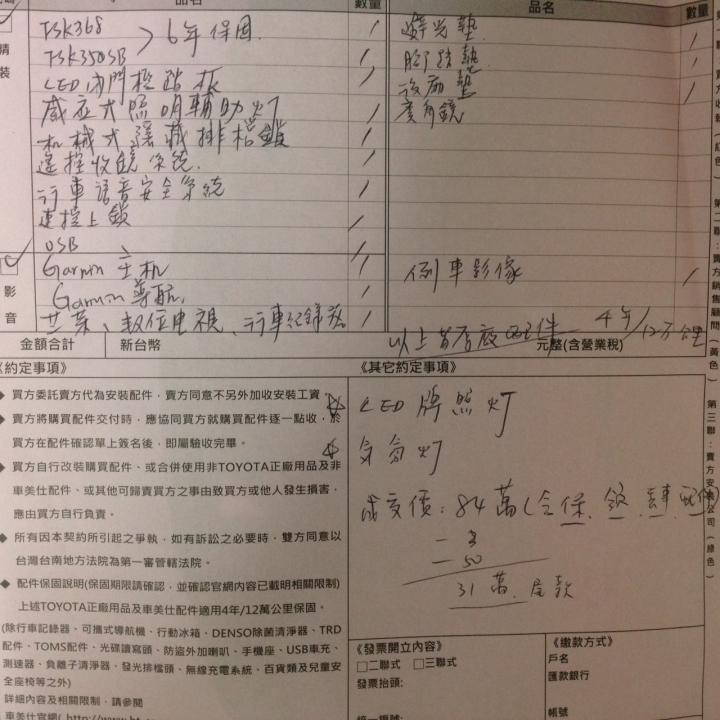 品名
數量
品名
數量
精
裝
FSK368
FSK350SB
6年保固
LED 內門檻踏板
感應式照明輔助灯
机械式隱藏排檔鎖
遙控收鏡系統
行車語音安全系統
速控上鎖
USB
Garmin 主机
Garmin 導航
數位電視、行車紀錄器
避光墊
腳踏墊
後廂墊
廣角鏡
倒車影像
以上皆原廠配件 4年/12万公里
影
音
金額合計
新台幣
元整(含營業稅)
《約定事項》
◆ 買方委託賣方代為安裝配件，賣方同意不另外加收安裝工資。
◆ 賣方將購買配件交付時，應協同買方就購買配件逐一點收，於
買方在配件確認單上簽名後，即屬驗收完畢。
◆ 買方自行改裝購買配件、或合併使用非TOYOTA正廠用品及非
車美仕配件、或其他可歸責買方之事由致買方或他人發生損害，
應由買方自行負責。
◆ 所有因本契約所引起之爭執，如有訴訟之必要時，雙方同意以
台灣台南地方法院為第一審管轄法院。
◆ 配件保固說明(保固期限請確認，並確認官網內容已載明相關限制)
上述TOYOTA正廠用品及車美仕配件適用4年/12萬公里保固。
(除行車記錄器、可攜式導航機、行動冰箱、DENSO除菌清淨器、TRD
配件、TOMS配件、光碟讀寫頭、防盜外加喇叭、手機座、USB車充、
測速器、負離子清淨器、發光排檔頭、無線充電系統、百貨類及兒童安
全座椅等之外)
詳細內容及相關限制，請參閱
《其它約定事項》
LED 牌照灯
氣氛灯
成交價：84萬(含保、領、配件)
- 3
- 50
31萬 尾款
《發票開立內容》
□二聯式 □三聯式
發票抬頭：
《繳款方式》
戶名
匯款銀行
帳號
第二聯：賣方銷售顧問（黃色）
第三聯：賣方安裝公司（綠色）